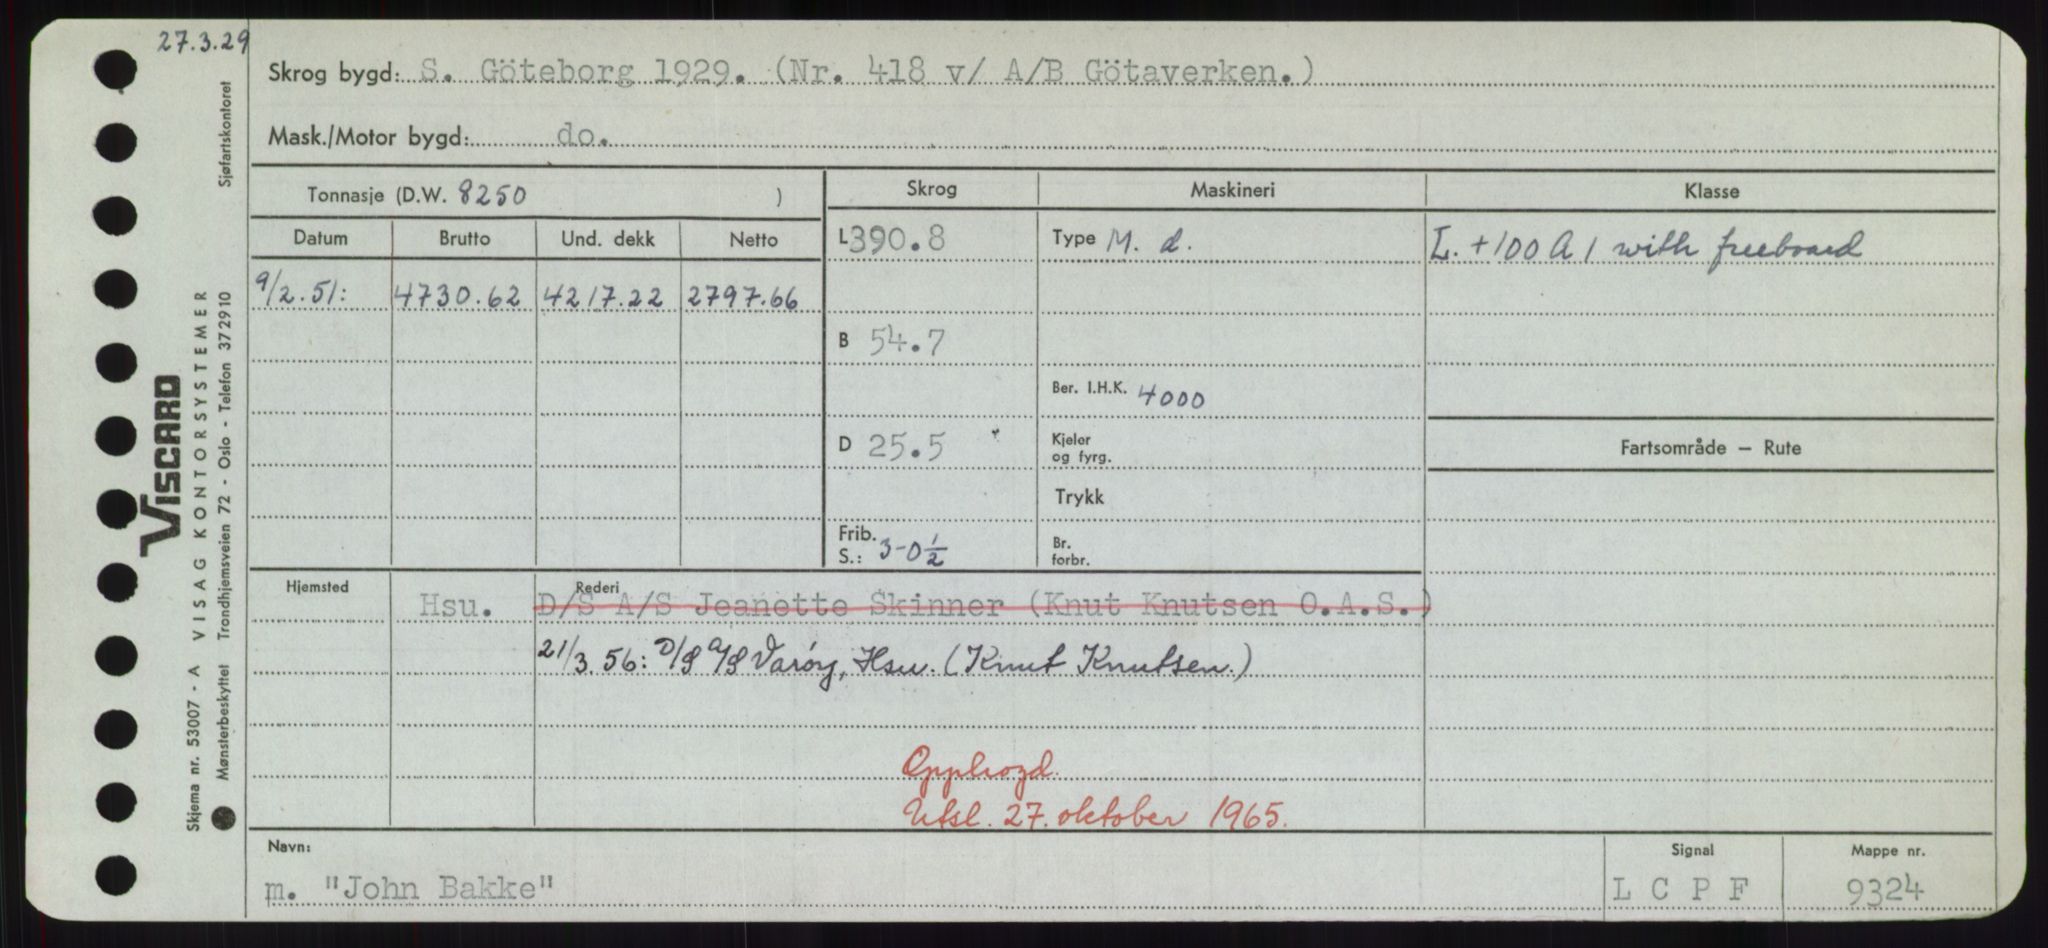 27.3.29
Skrog bygd: S. Göteborg 1929. (Nr. 418 v/ A/B Götaverken.)
Mask./Motor bygd: do.
Tonnasje (D.W. 8250 )
Skrog
Maskineri
Klasse
Datum
Brutto
Und. dekk
Netto
L 390.8
Type M. d.
L. +100 A 1 with freeboard
9/2.51:
4730.62
4217.22
2797.66
B 54.7
Ber. I.H.K. 4000
D 25.5
Kjeler
og fyrg.
Fartsområde – Rute
Trykk
Frib.
S.: 3-0 1/2
Br.
forbr.
Hjemsted
Rederi
Hsu. D/S A/S Jeanette Skinner (Knut Knutsen O.A.S.)
21/3.56: D/S A/S Varöy, Hsu. (Knut Knutsen.)
Opphogd.
Utsl. 27. oktober 1965.
Navn:
Signal
Mappe nr.
m. "John Bakke"
L C P F
9324
Sjøfartskontoret
VISCARD
VISAG KONTORSYSTEMER
Skjema nr. 53007 - A
Mønsterbeskyttet Trondhjemsveien 72 - Oslo - Telefon 372910